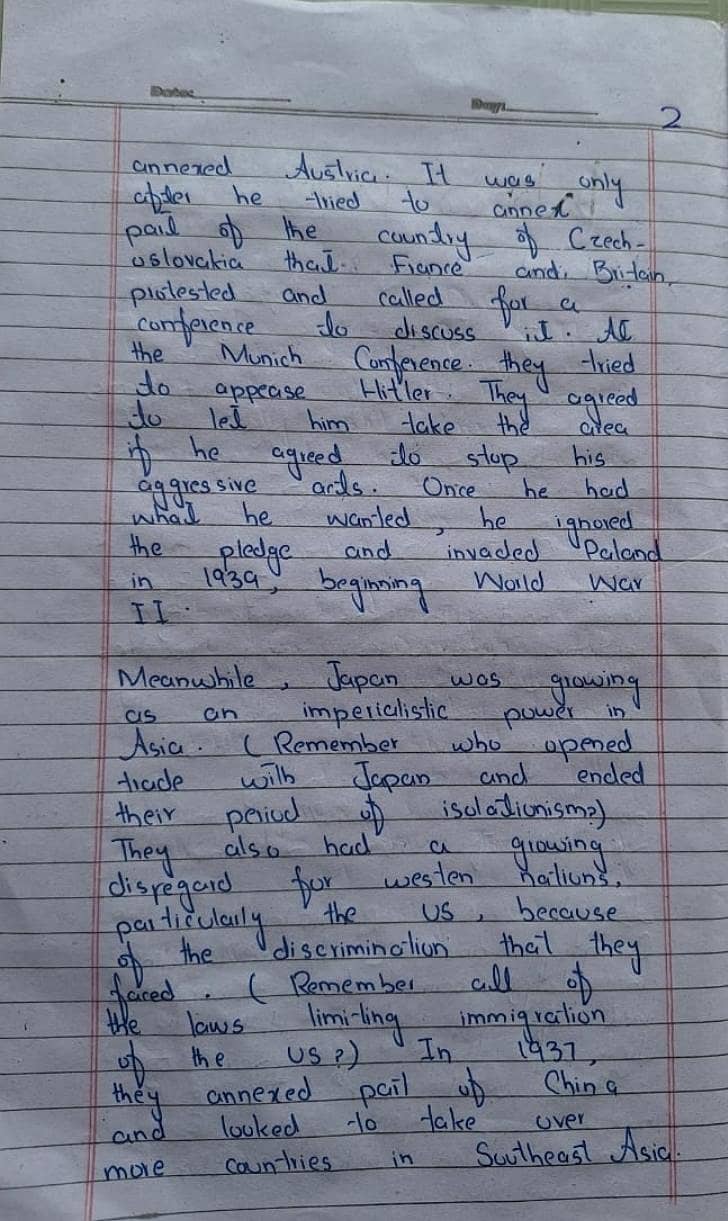 Date:
Day:
2
annexed Austria. It was only
after he tried to annex
part of the country of Czech-
oslovakia that France and Britain
protested and called for a
conference to discuss it. At
the Munich Conference. they tried
to appease Hitler. They agreed
to let him take the area
if he agreed to stop his
aggressive acts. Once he had
what he wanted, he ignored
the pledge and invaded Poland
in 1939, beginning World War
II.
Meanwhile, Japan was growing
as an imperialistic power in
Asia. (Remember who opened
trade with Japan and ended
their period of isolationism?)
They also had a growing
disregard for westen nations,
particularly the US, because
of the discrimination that they
faced. (Remember all of
the laws limiting immigration
of the US?) In 1937,
they annexed part of China
and looked to take over
more countries in Southeast Asia.